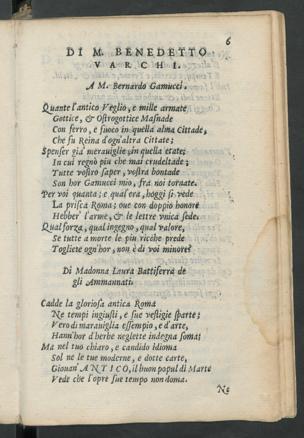 6
DI M. BENEDETTO
VARCHI.
A M. Bernardo Gamucci.
Quante l'antico Veglio, e mille armate
Gottice, & Ostrogottice Masnade
Con ferro, e fuoco in quella alma Cittade,
Che fu Reina d'ogn'altra Cittate;
Spenser già merauiglie, in quella etate;
In cui regnò piu che mai crudeltade;
Tutte vostro saper, vostra bontade
Son hor Gamucci mio, fra noi tornate.
Per voi quanta; e qual era, hoggi si vede
La prisca Roma; oue con doppio honore
Hebber l'arme, & le lettre vnica sede.
Qual forza, qual ingegno, qual valore,
Se tutte a morte le piu ricche prede
Togliete ogn'hor, non è di voi minore?
Di Madonna Laura Battiferra de
gli Ammannati.
Cadde la gloriosa antica Roma
Ne tempi ingiusti, e sue vestigie sparte;
Vero di marauiglia essempio, e d'arte,
Hann'hor d'herbe neglette indegna soma;
Ma nel tuo chiaro, e candido idioma
Sol ne le tue moderne, e dotte carte,
Giouan' ANTICO, il buon popul di Marte
Vede che l'opre sue tempo non doma.
Ne